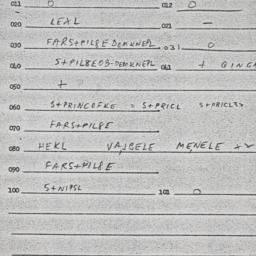 011 0 012 0
020 LEXL 021 —
030 FARS+PILSE DEMKNEPL 031 0
040 S+PILSEOB-DEMKNEPL 041 +
050 +
060 S+PRINCOFKE = S+PRICL
070 FARS+PILSE
080 HEKL VAJSELE MENELE
090 FARS+PILSE
100 S+NIPSL 101 0